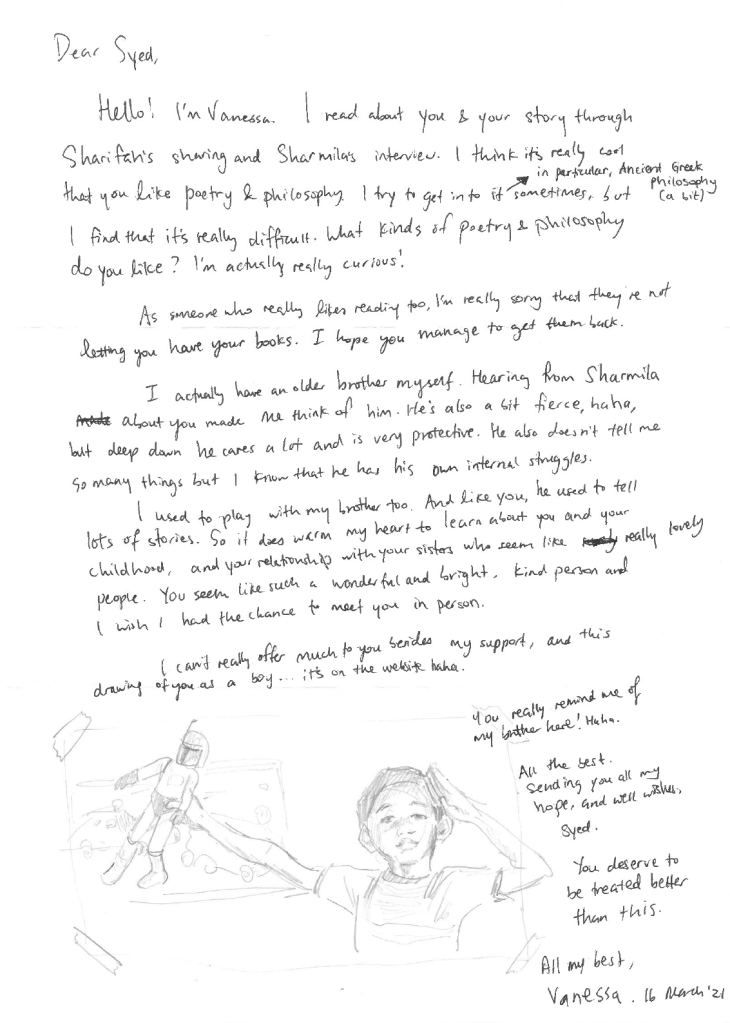 Dear Syed,
Hello! I'm Vanessa. I read about you & your story through
Sharifah's sharing and Sharmila's interview. I think it's really cool
that you like poetry & philosophy. I try to get into it sometimes, but
in particular, Ancient Greek
Philosophy
(a bit)
I find that it's really difficult. What kinds of poetry & philosophy
do you like? I'm actually really curious!
As someone who really likes reading too, I'm really sorry that they're not
letting you have your books. I hope you manage to get them back.
I actually have an older brother myself. Hearing from Sharmila
made about you made me think of him. He's also a bit fierce, haha,
but deep down he cares a lot and is very protective. He also doesn't tell me
so many things but I know that he has his own internal struggles.
I used to play with my brother too. And like you, he used to tell
lots of stories. So it does warm my heart to learn about you and your
childhood, and your relationship with your sisters who seem like really lovely
people. You seem like such a wonderful and bright, kind person and
I wish I had the chance to meet you in person.
I can't really offer much to you besides my support, and this
drawing of you as a boy... it's on the website haha.
You really remind me of
my brother here! Haha.
All the best.
Sending you all my
hope, and well wishes,
Syed.
You deserve to
be treated better
than this.
All my best,
Vanessa. 16 March '21